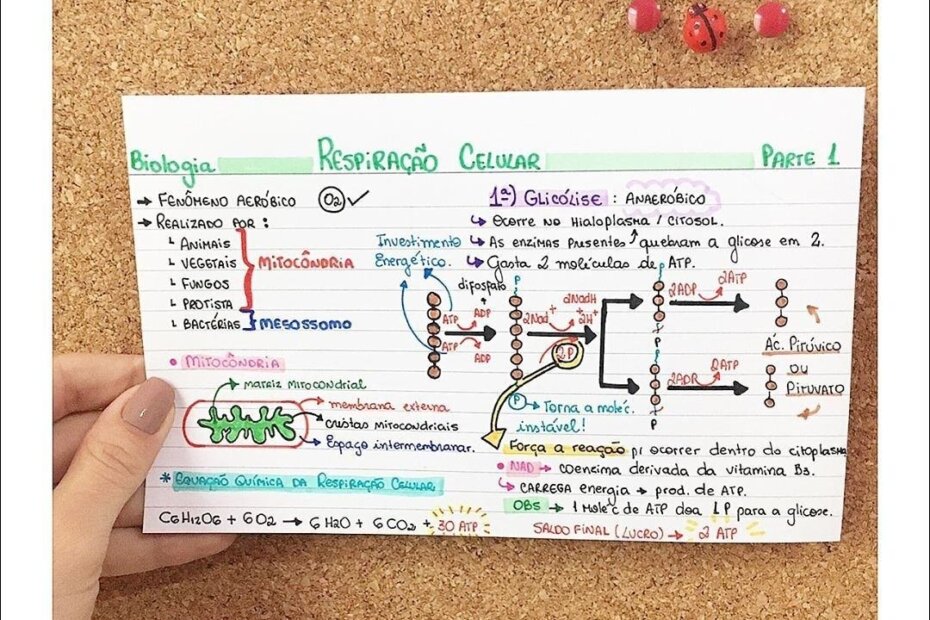 Biologia RESPIRAÇÃO CELULAR PARTE 1
→ FENÔMENO AERÓBICO O2 ✓
→ REALIZADO POR :
ANIMAIS
VEGETAIS
FUNGOS
PROTISTA
MITOCÔNDRIA
BACTÉRIAS MESOSSOMO
• MITOCÔNDRIA
matriz mitocondrial
membrana externa
cristas mitocondriais
Espaço intermembranar.
* EQUAÇÃO QUÍMICA DA RESPIRAÇÃO CELULAR
C6H12O6 + 6O2 → 6H2O + 6CO2 + 30 ATP
1ª) GLICÓLISE : ANAERÓBICO
OCORRE NO HIALOPLASMA / CITOSOL.
As enzimas presentes ↑ quebram a glicose em 2.
Gasta 2 moléculas de ATP.
Investimento
Energético.
difosfato
+
P
ATP ADP
ATP ADP
2NadH
+
2Nad+ 2H+
2P
P
P
P
P
2ADP 2ATP
2ADP 2ATP
ÁC. PIRÚVICO
OU
PIRUVATO
P → Torna a moléc.
instável!
Força a reação p/ ocorrer dentro do citoplasma
• NAD → coenzima derivada da vitamina B3.
CARREGA energia → prod. de ATP.
OBS → 1 moléc de ATP doa 1 P para a glicose.
SALDO FINAL (LUCRO) → 2 ATP